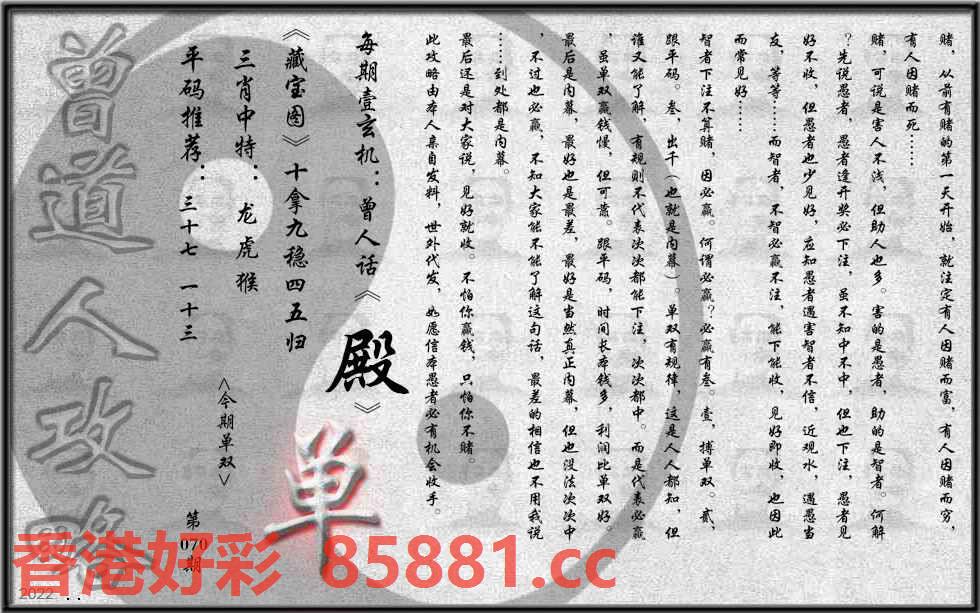 赌，从前有赌的第一天开始，就注定有人因赌而富，有人因赌而穷，
有人因赌而死……
赌，可说是害人不浅，但助人也多。害的是愚者，助的是智者。何解
？先说愚者，愚者逢开奖必下注，虽不知中不中，但也下注，愚者见
好不收，但愚者也少见好，应知愚者遇害智者不信，近观水，遇愚当
友，等等……而智者，不智必赢不注，能下能收，见好即收，也因此
而常见好……
智者下注不算赌，因必赢。何谓必赢？必赢有叁。壹，搏单双。贰，
跟平码。叁，出千（也就是内幕）。单双有规律，这是人人都知，但
谁又能了解，有规则不代表次次都能下注，次次都中。而是代表必赢
，虽单双赢钱慢，但可靠。跟平码，时间长本钱多，利润比单双好。
最后是内幕，最好也是最差，最好是当然真正内幕，但也没法次次中
，不过也必赢，不知大家能不能了解这句话，最差的相信也不用我说
……到处都是内幕。
最后还是对大家说，见好就收。不怕你赢钱，只怕你不赌。
此攻略由本人亲自发料，世外代发，如愿信本愚者必有机会收手。
每期壹玄机：曾人话《殿》
《藏宝图》十拿九稳四五归
三肖中特：龙虎猴
平码推荐：三十七 一十三
<今期单双>
单
第070期
曾道人攻略
香港好彩 85881.cc
2022